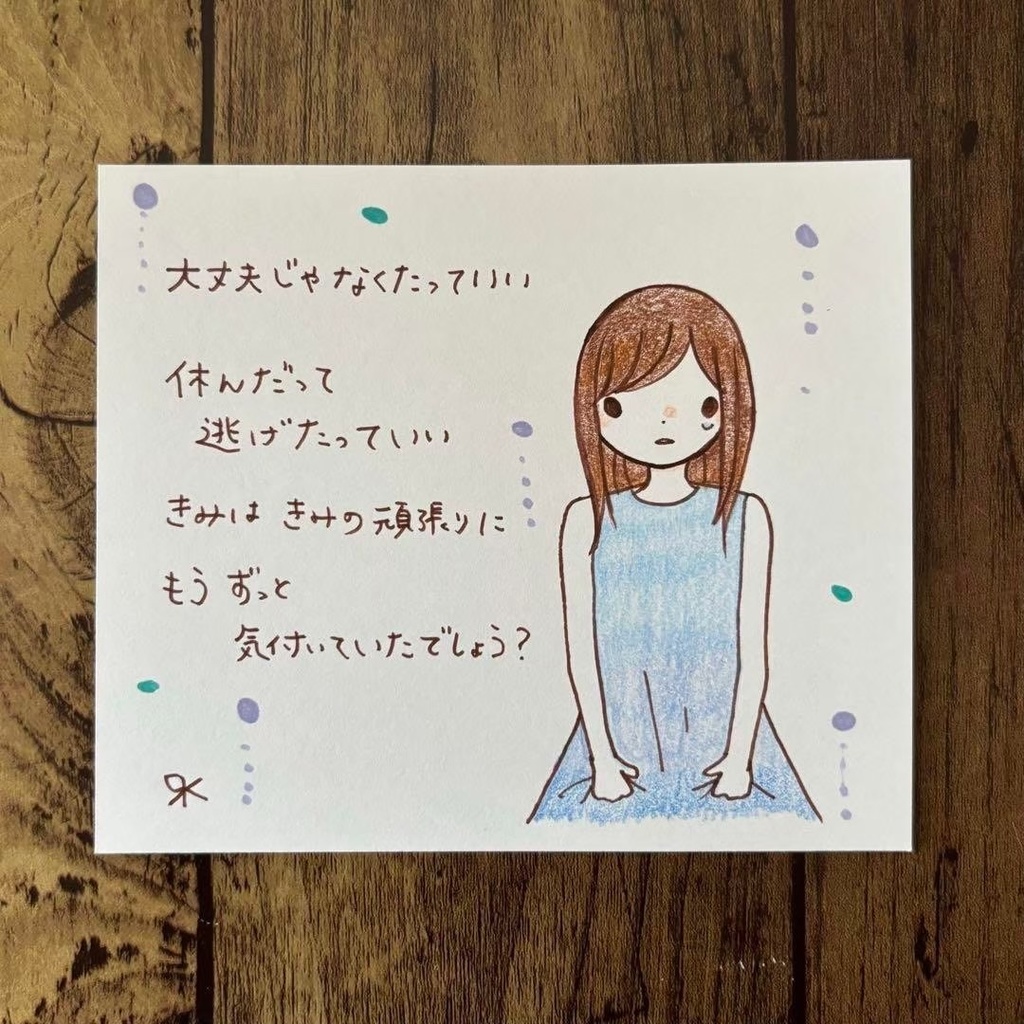 大丈夫じゃなくたっていい
休んだって
逃げたっていい
きみは きみの頑張りに
もう ずっと
気付いていたでしょう?